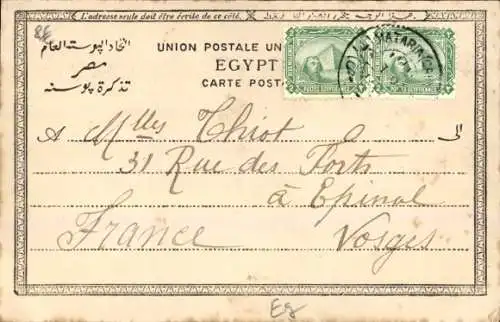 L'adresse seule doit être écrite de ce côté.
اتحاد البوستة العام
مصر
تذكرة بوسته
UNION POSTALE UN
EGYPT
CARTE POST
MATARIA
A Mlles Thiot
الى
31 Rue des Forts
à Epinal
France Vosges
Eg